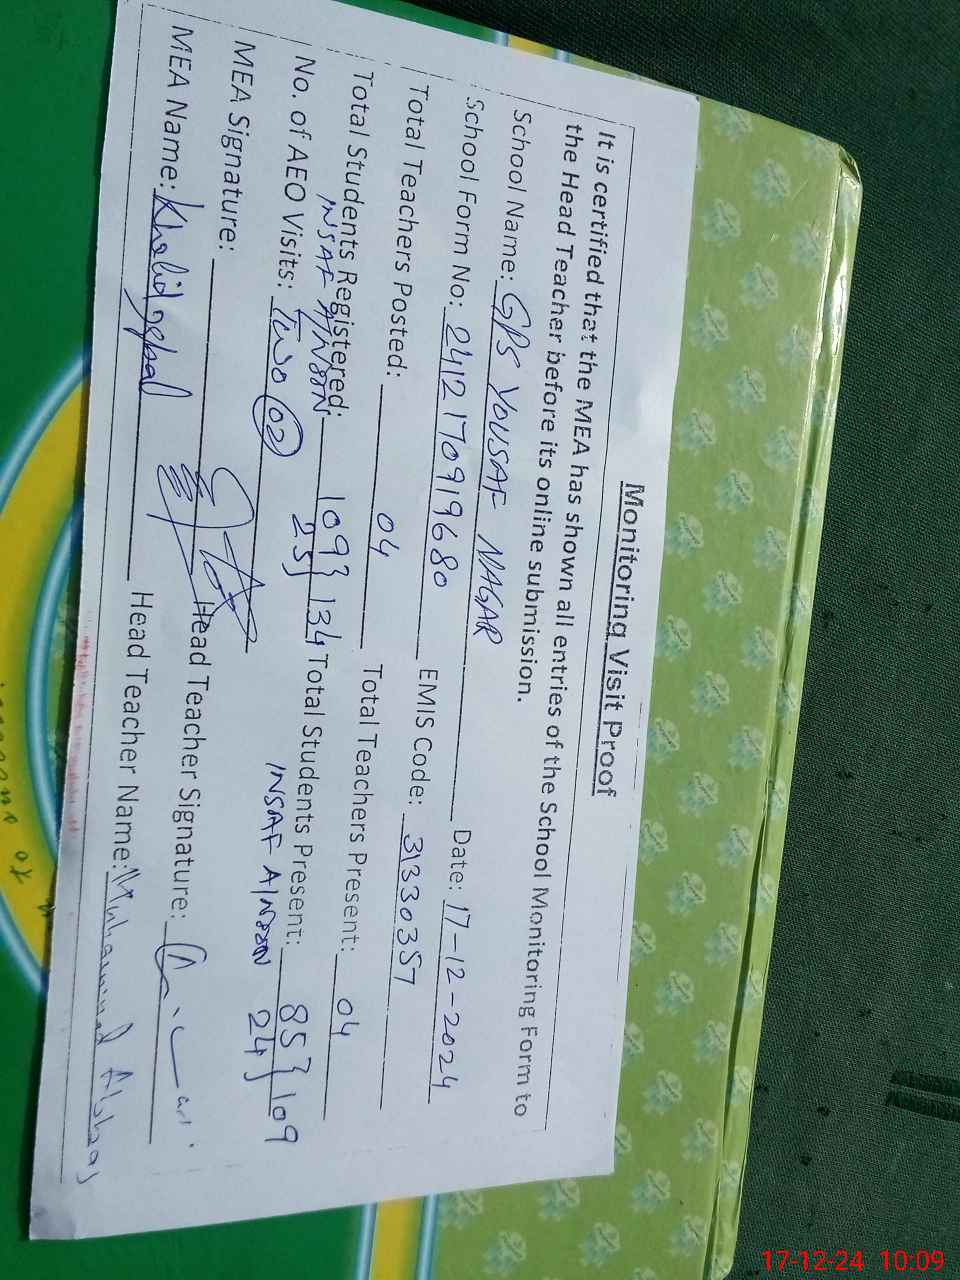 Monitoring Visit Proof
It is certified that the MEA has shown all entries of the School Monitoring Form to
the Head Teacher before its online submission.
School Name: GPS YOUSAF NAGAR
School Form No: 2412170919680 Date: 17-12-2024
Total Teachers Posted: 04 EMIS Code: 31330357
Total Teachers Present: 04
Total Students Registered: 109} 134 Total Students Present: 85} 109
INSAF 25} INSAF 24}
No. of AEO Visits: Two 02
MEA Signature: Head Teacher Signature:
MEA Name: Khalid Iqbal Head Teacher Name: Muhammad Abbas
17-12-24 10:09